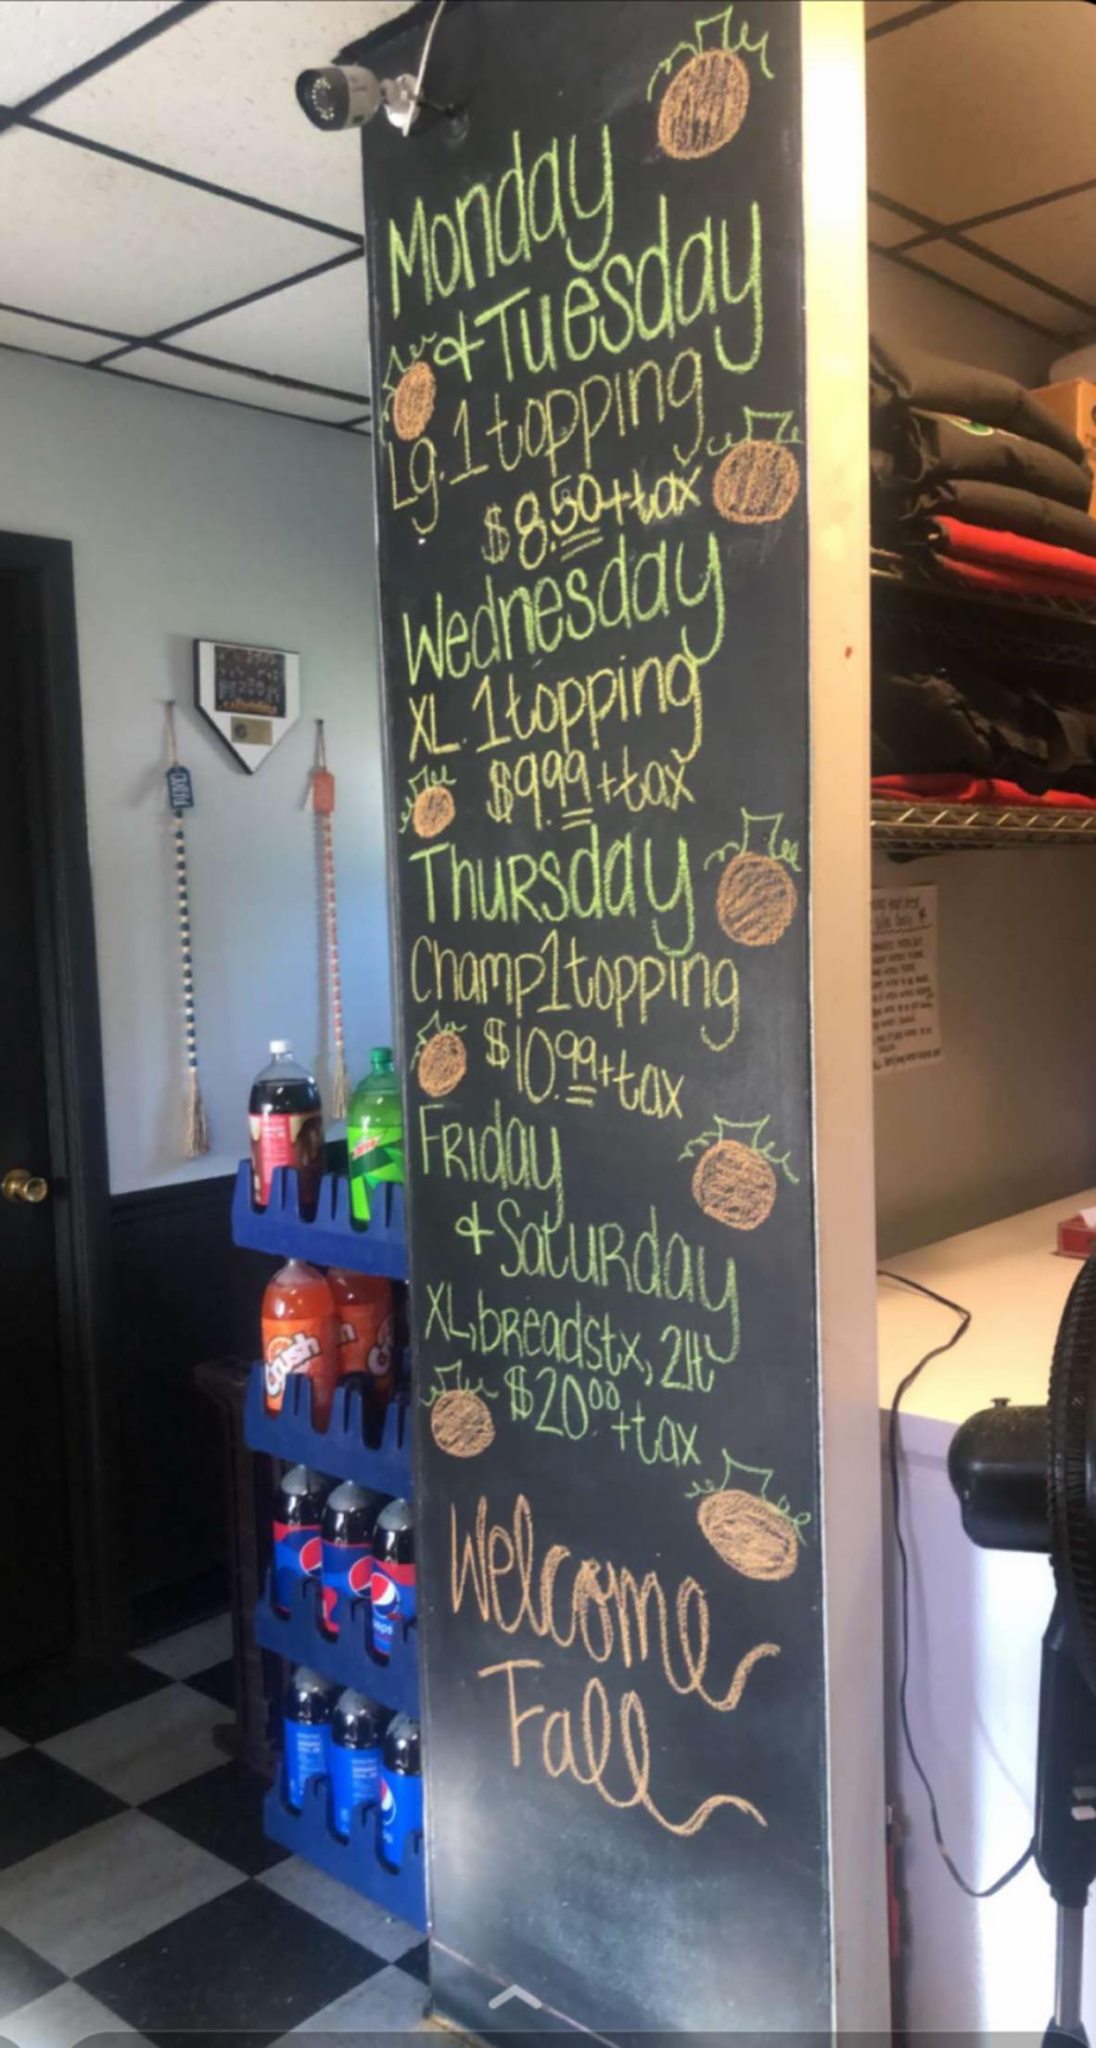 Monday
& Tuesday
Lg. 1 topping
$8.50 + tax
Wednesday
XL. 1 topping
$9.99 + tax
Thursday
Champ 1 topping
$10.99 + tax
Friday
& Saturday
XL, breadstx, 2lt
$20.00 + tax
Welcome
Fall
Crush
pepsi